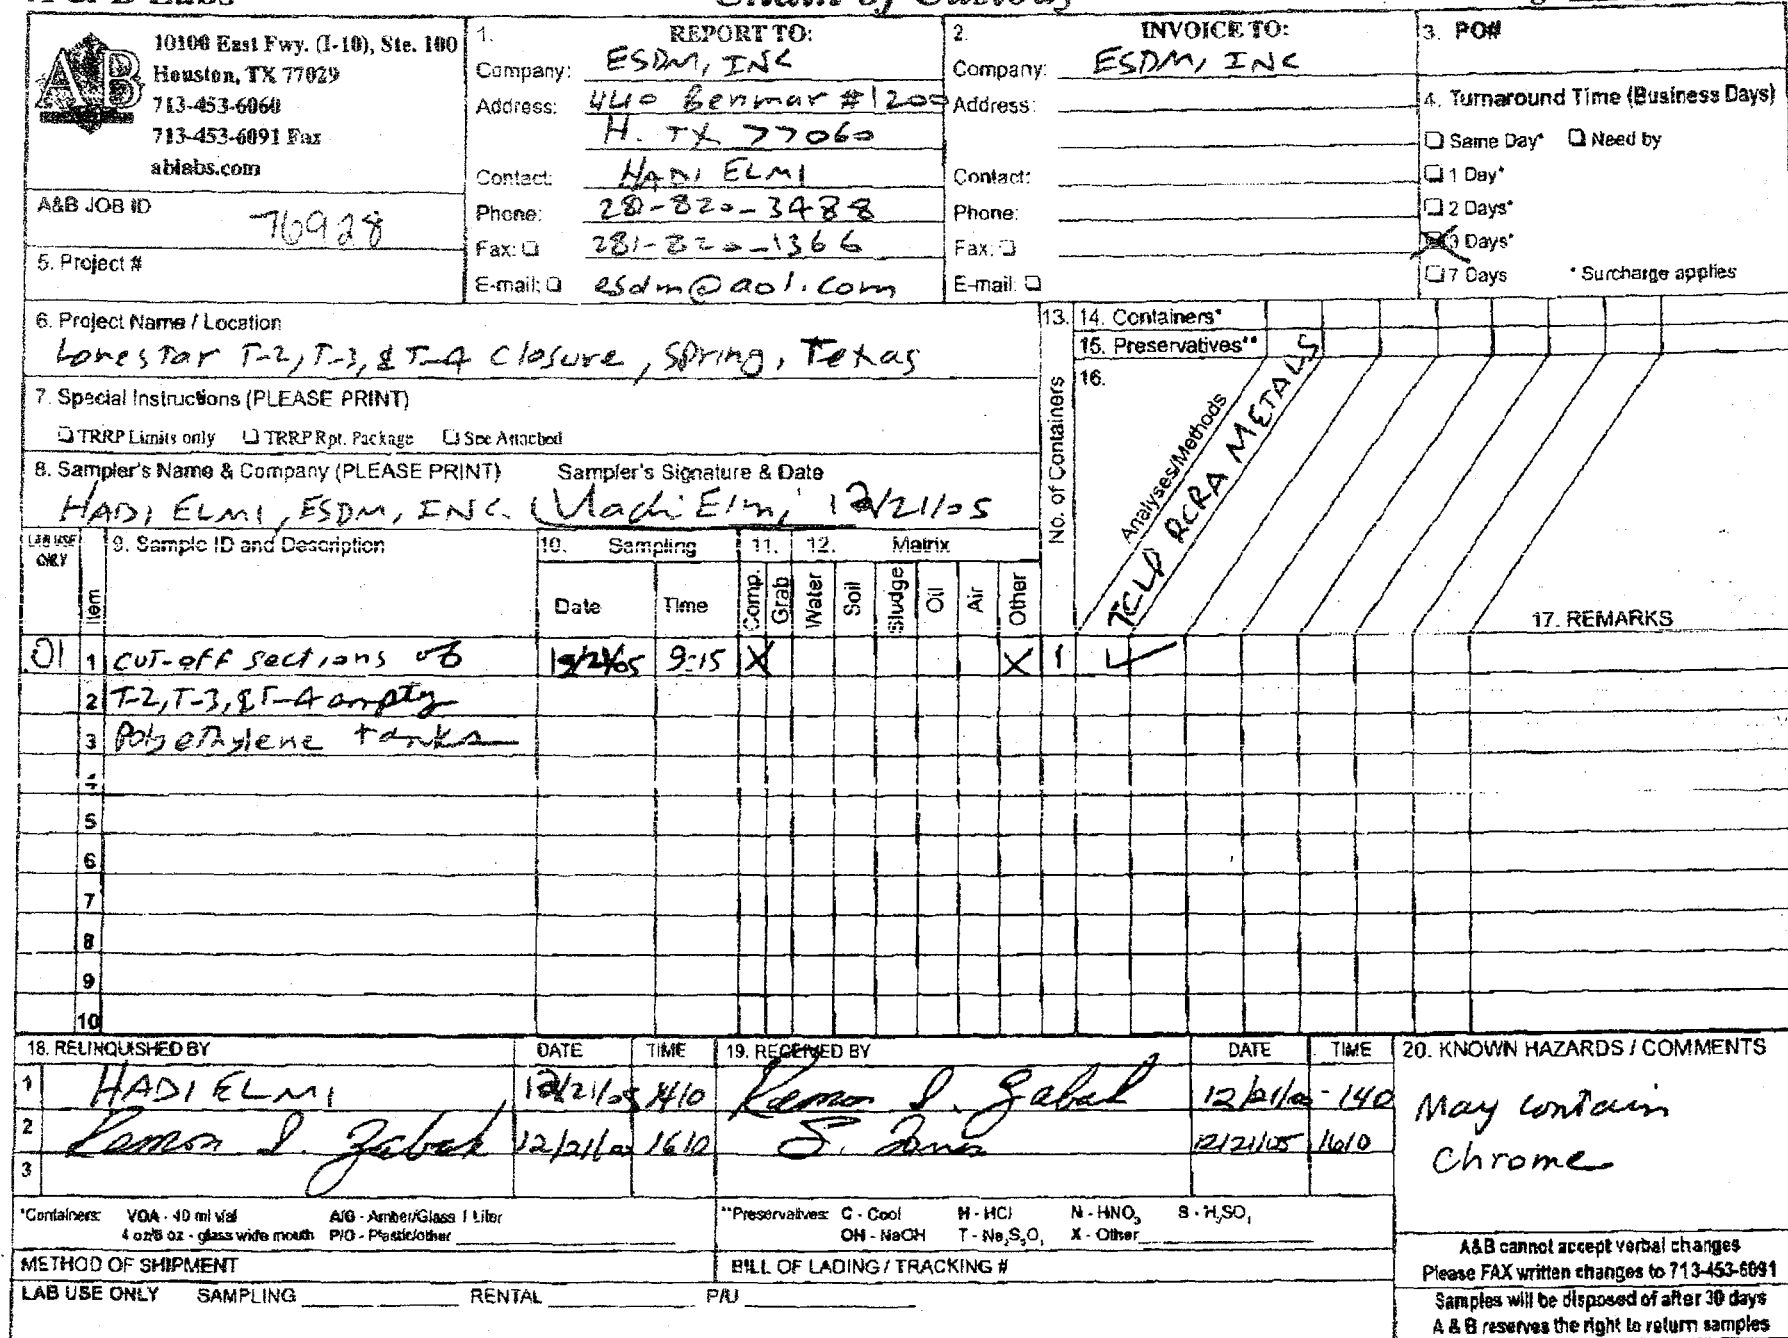 Chain of Custody
10100 East Fwy. (I-10), Ste. 100
Houston, TX 77029
713-453-6060
713-453-6091 Fax
ablabs.com
A&B JOB ID 76928
5. Project #
1. REPORT TO:
Company: ESDM, INC
Address: 440 Benmar #1200
H. TX 77060
Contact: HADI ELMI
Phone: 281-820-3488
Fax: 281-820-1366
E-mail: esdm@aol.com
2. INVOICE TO:
Company: ESDM, INC
Address:
Contact:
Phone:
Fax:
E-mail:
3. PO#
4. Turnaround Time (Business Days)
Same Day* Need by
1 Day*
2 Days*
3 Days*
7 Days * Surcharge applies
6. Project Name / Location
Lonestar T-2, T-3, & T-4 Closure, Spring, Texas
7. Special Instructions (PLEASE PRINT)
TRRP Limits only TRRP Rpt. Package See Attached
8. Sampler's Name & Company (PLEASE PRINT) Sampler's Signature & Date
HADI ELMI, ESDM, INC. Hadi Elmi 12/21/05
13. No. of Containers
14. Containers*
15. Preservatives**
16. Analyses/Methods
TCLP RCRA METALS
17. REMARKS
LAB USE ONLY
Item
9. Sample ID and Description
10. Sampling
Date Time
11. Comp. Grab
12. Matrix
Water Soil Sludge Oil Air Other
01 1 cut-off sections of 12/21/05 9:15 X X 1 ✓
2 T-2, T-3, & T-4 empty
3 Polyethylene tanks
4
5
6
7
8
9
10
18. RELINQUISHED BY DATE TIME 19. RECEIVED BY DATE TIME
1 HADI ELMI 12/21/05 1410 Ramon I. Zabad 12/21/05 - 1410
2 Ramon I. Zabad 12/21/05 1610 S. 12/21/05 1610
3
20. KNOWN HAZARDS / COMMENTS
May contain
Chrome
*Containers: VOA - 40 ml vial A/G - Amber/Glass 1 Liter
4 oz/8 oz - glass wide mouth P/O - Plastic/other
**Preservatives: C - Cool H - HCl N - HNO3 S - H2SO4
OH - NaOH T - Na2S2O3 X - Other
METHOD OF SHIPMENT
BILL OF LADING / TRACKING #
LAB USE ONLY SAMPLING RENTAL P/U
A&B cannot accept verbal changes
Please FAX written changes to 713-453-6091
Samples will be disposed of after 30 days
A & B reserves the right to return samples